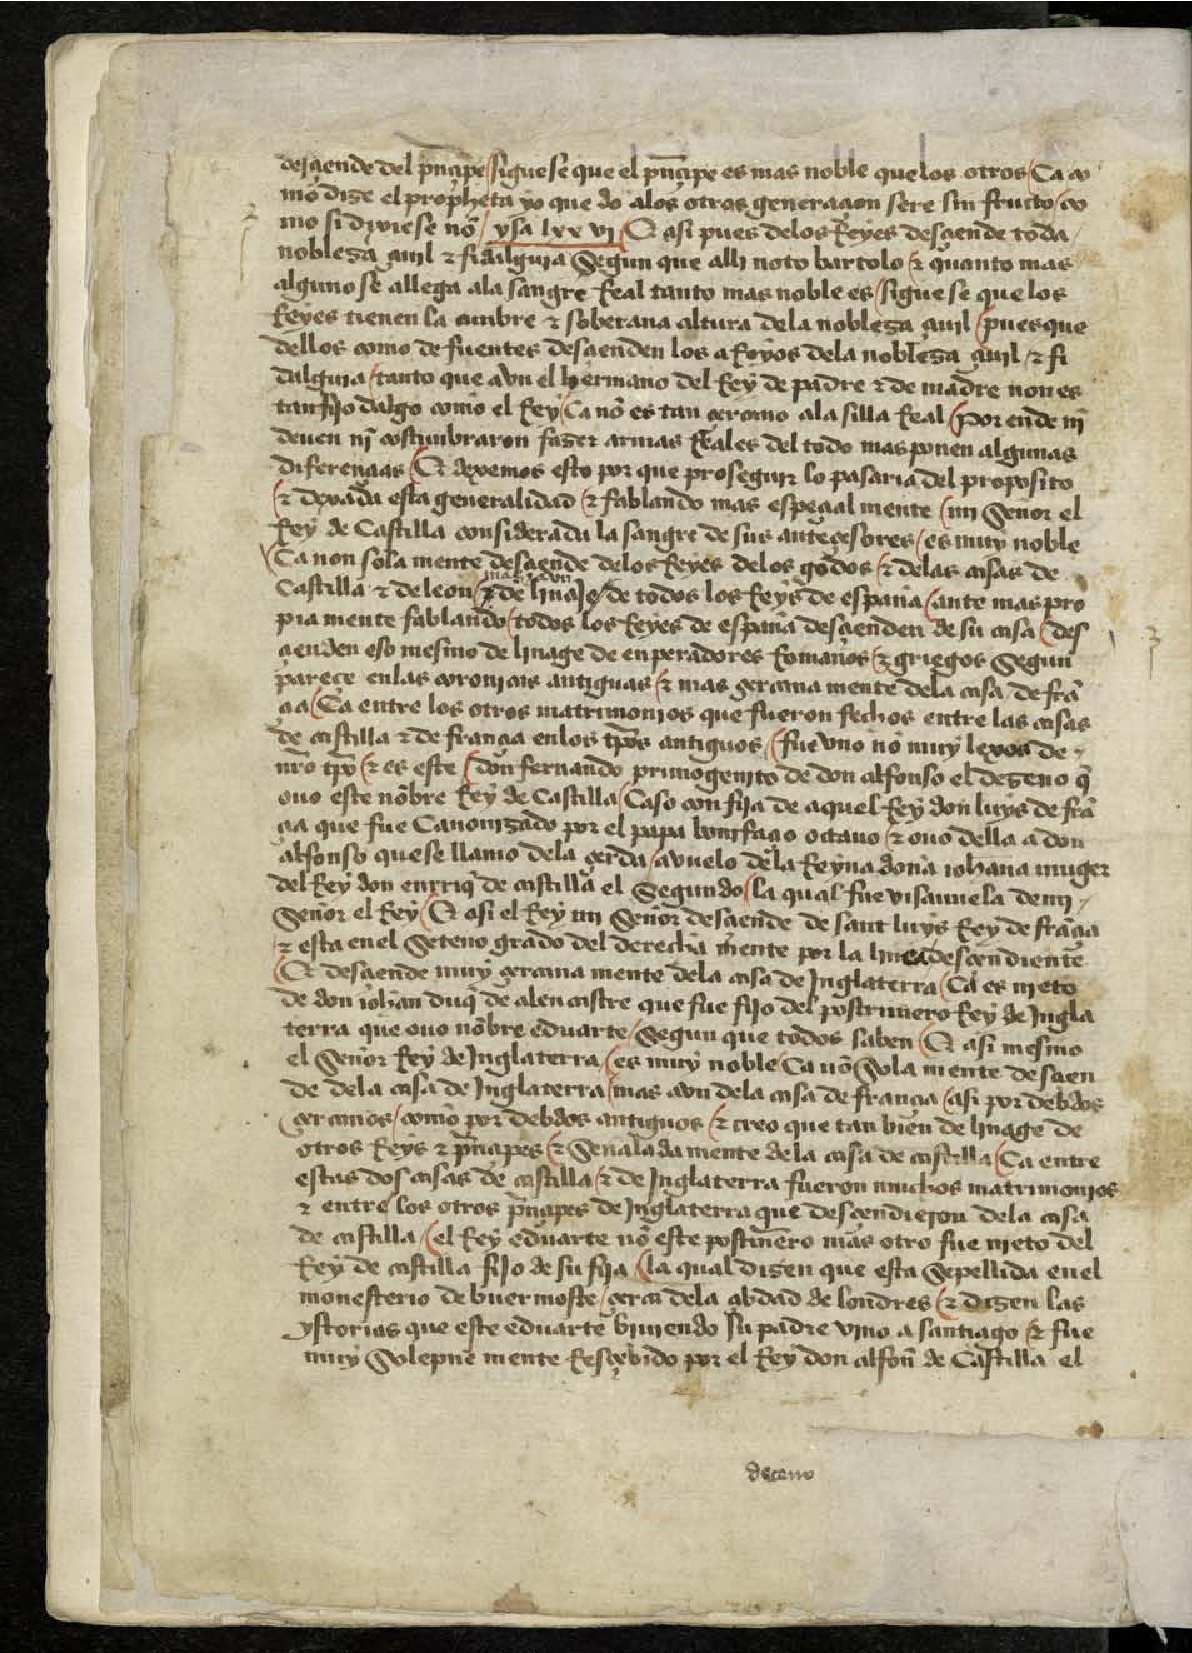 desçiende del pñçipe / sigue se que el pñçipe es mas noble que los otros / Ca co
mo dize el propheta yo que do a los otros generaçion sere sin fructo / co
mo si dixiese nõ / ysa lxx vi / Et asi pues de los Reyes desçiende toda
nobleza çiuil & fidalguia Segun que alli noto bartolo / & quanto mas
alguno se allega a la sangre Real tanto mas noble es / sigue se que los
Reyes tienen la cunbre & soberana altura de la nobleza çiuil / pues que
dellos como de fuentes desçienden los aRoyos de la nobleza çiuil / & fi
dalguia / tanto que avn el hermano del Rey de padre & de madre non es
tan fijo dalgo como el Rey / Ca nõ es tan çercano a la silla Real / Por ende nĩ
deuen nĩ costunbraron fazer armas Reales del todo mas ponen algunas
diferençias / Et dexemos esto por que proseguir lo pasaria del proposito
& dexada esta generalidad / & fablando mas espeçial mente / mi Señor el
Rey de Castilla considerada la sangre de sus anteçesores / es muy noble
Ca non sola mente desçiende de los Reyes de los godos / & de las casas de
Castilla & de leon / & de linaje / de todos los Reyes de españa / ante mas pro
pia mente fablando / todos los Reyes de españa desçienden de su casa / des
çienden eso mesmo de linage de enperadores Romanos / & griegos Segun
pareçe en las coronicas antiguas / & mas çercana mente de la casa de frã
çia / Ca entre los otros matrimonios que fueron fechos entre las casas
de castilla & de françia en los tpõs antiguos / fue vno nõ muy lexos de
nr̃o tpõ / & es este / don fernando primogenito de don alfonso el dezeno q̃
ouo este nõbre Rey de Castilla / Caso con fija de aquel Rey don luys de frã
çia que fue Canonizado por el papa bonifaçio octauo / & ouo della a don
alfonso que se llamo de la çerda / avuelo de la Reyna doña iohana muger
del Rey don enrriq̃ de castilla el Segundo / la qual fue visauuela de mi
Señor el Rey / Et asi el Rey mi Señor desçiende de sant luys Rey de françia
& esta en el Seteno grado del derecha mente por la linea desçendiente
Et desçiende muy çercana mente de la casa de Inglaterra / Ca es nieto
de don iohan duq̃ de alencastre que fue fijo del postrimero Rey de Ingla
terra que ouo nõbre eduarte / Segun que todos saben / Et asi mesmo
el Señor Rey de Inglaterra / es muy noble / Ca nõ Sola mente desçien
de de la casa de Inglaterra / mas avn de la casa de françia / asi por debdos
çercanos / como por debdos antiguos / & creo que tan bien de linage de
otros Reys & pñçipes / & Señalada mente de la casa de castilla / Ca entre
estas dos casas de castilla / & de Inglaterra fueron muchos matrimonios
& entre los otros pñçipes de Inglaterra que desçendieron de la casa
de castilla / el Rey eduarte nõ este postrimero mas otro fue nieto del
Rey de castilla fijo de su fija / la qual dizen que esta Sepellida en el
monesterio de buermoste / çerca de la çibdad de londres / & dizen las
ystorias que este eduarte biuiendo su padre vino a santiago / & fue
muy Solepne mente Resçebido por el Rey don alfoñ de Castilla el
dezeno